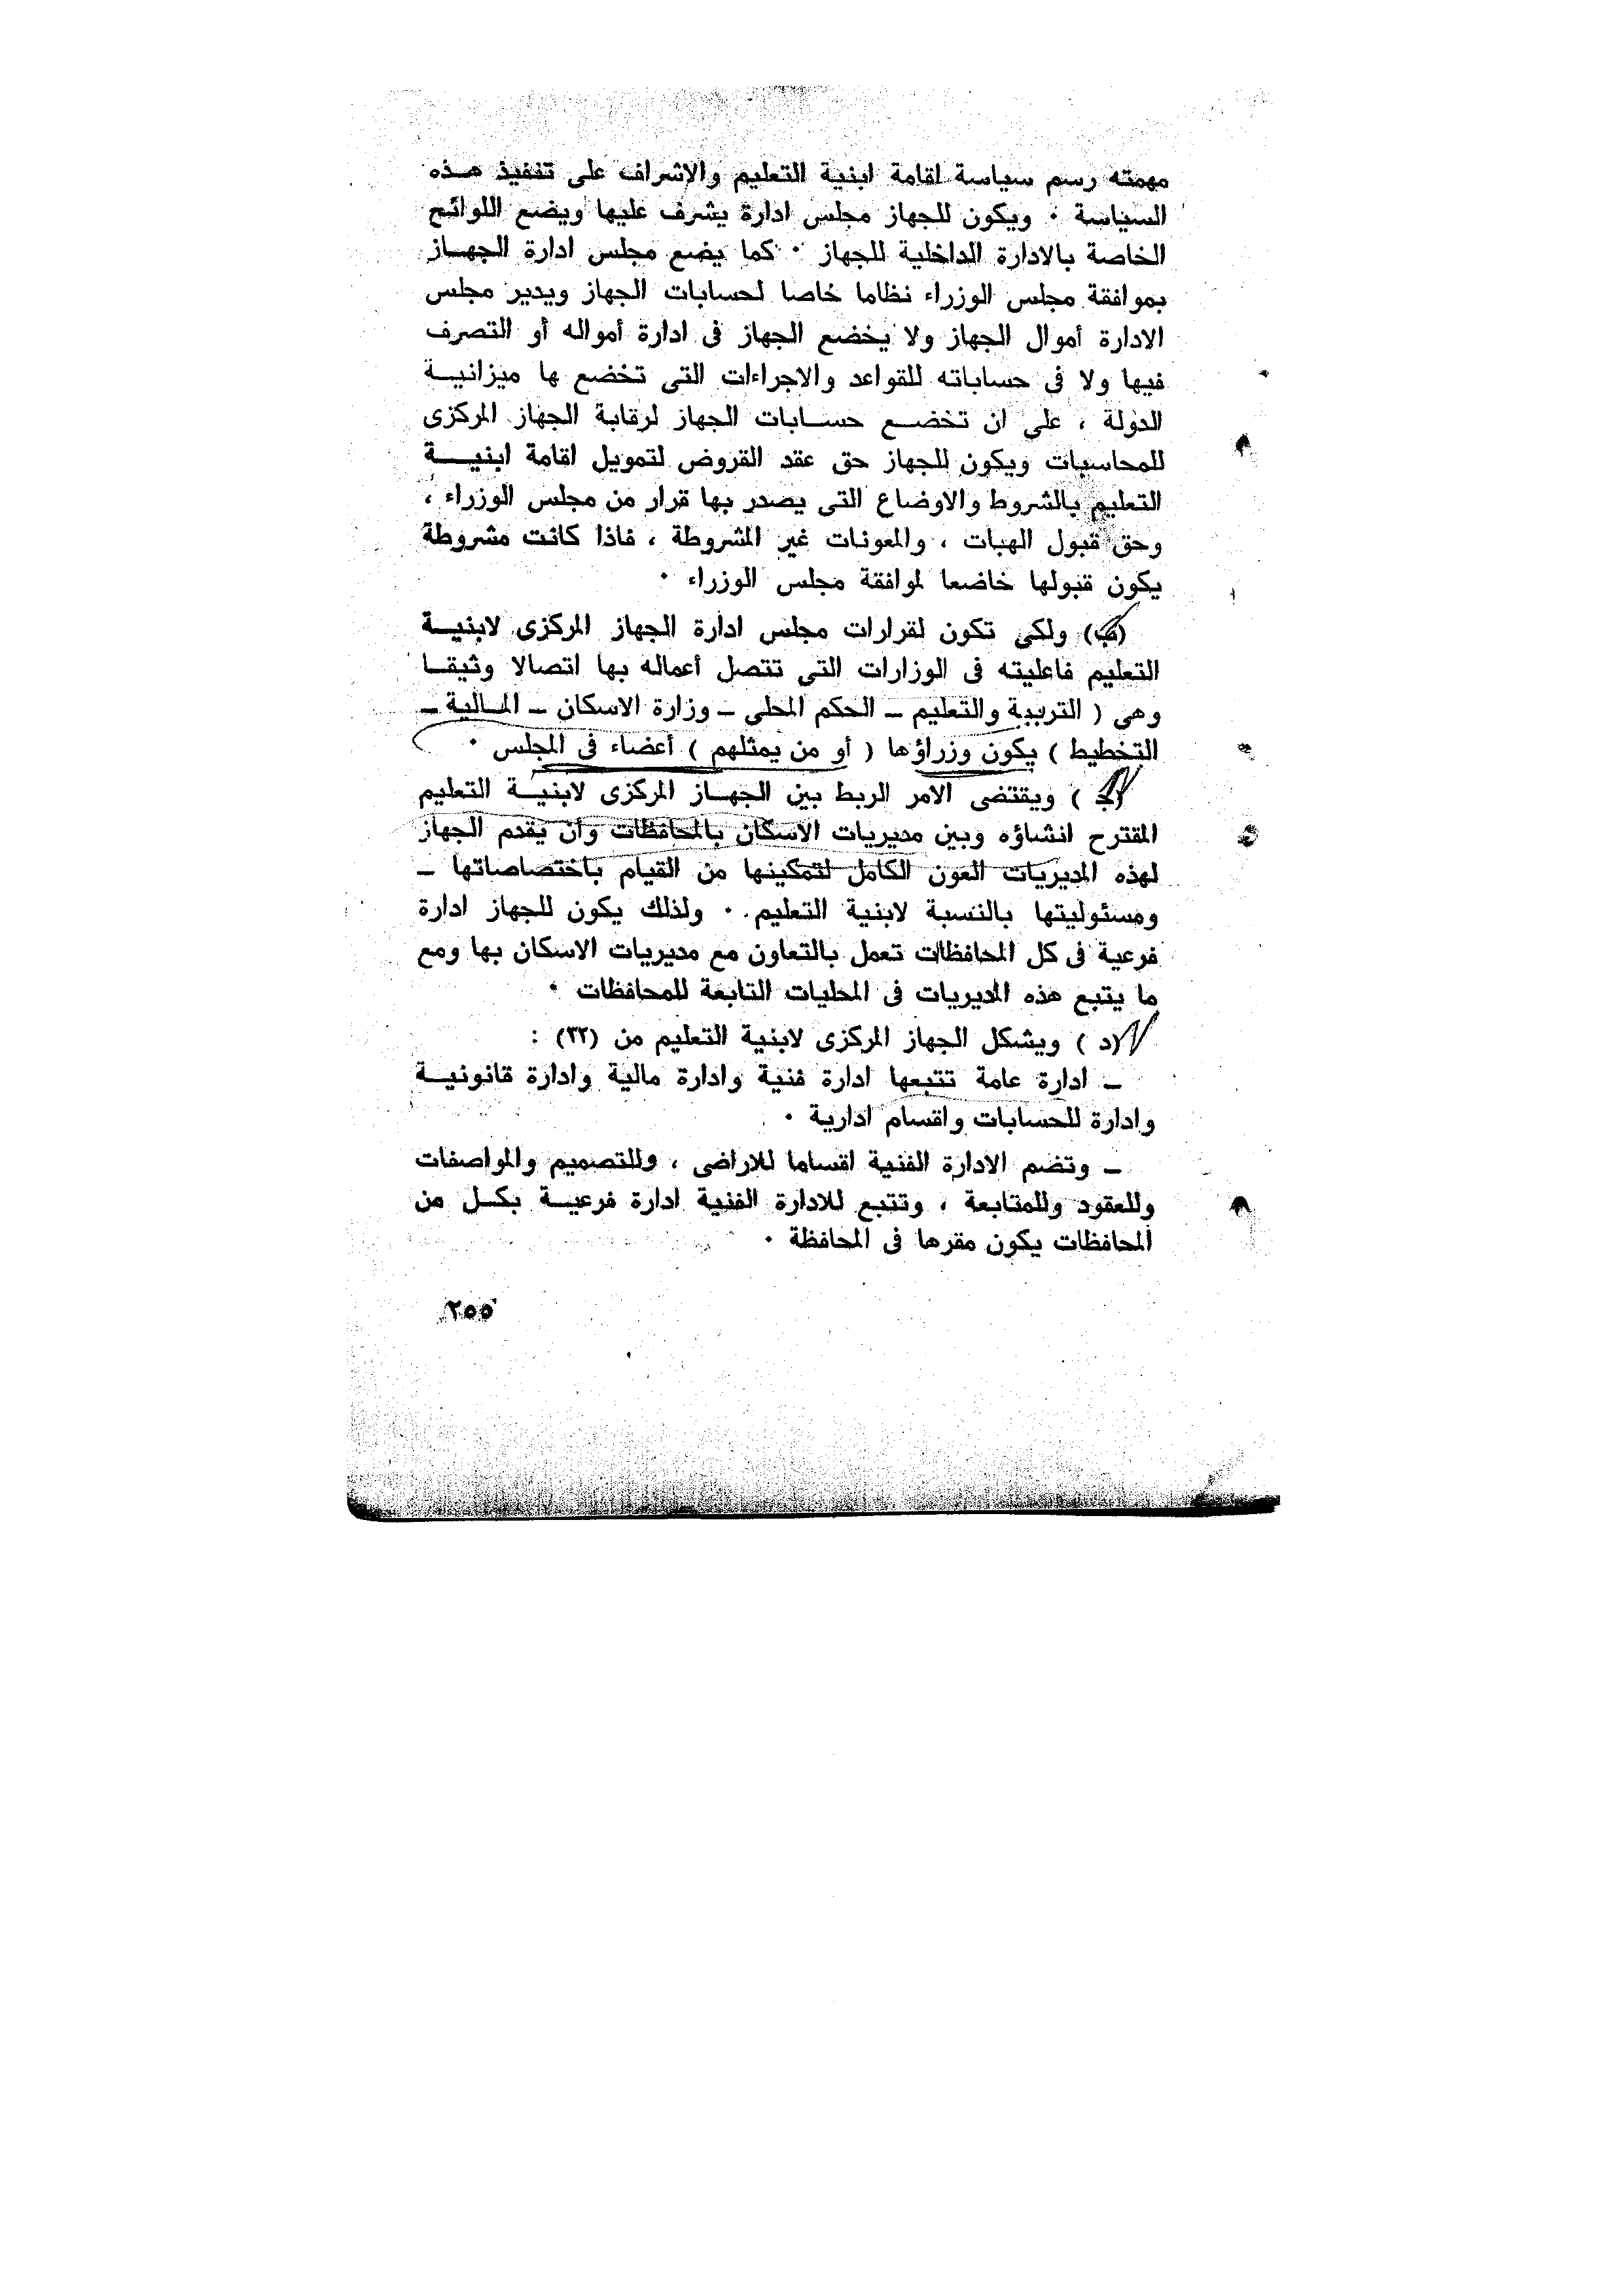 مهمته رسم سياسة اقامة ابنية التعليم والاشراف على تنفيذ هـذه
السياسة ٠ ويكون للجهاز مجلس ادارة يشرف عليها ويضع اللوائح
الخاصة بالادارة الداخلية للجهاز ٠ كما يضع مجلس ادارة الجهـاز
بموافقة مجلس الوزراء نظاما خاصا لحسابات الجهاز ويدير مجلس
الادارة أموال الجهاز ولا يخضع الجهاز فى ادارة أمواله أو التصرف
فيها ولا فى حساباته للقواعد والاجراءات التى تخضع ها ميزانيـة
الدولة ، على ان تخضـع حسـابات الجهاز لرقابة الجهاز المركزى
للمحاسبات ويكون للجهاز حق عقد القروض لتمويل اقامة ابنيـــة
التعليم بالشروط والاوضاع التى يصدر بها قرار من مجلس الوزراء ،
وحق قبول الهبات ، والمعونات غير المشروطة ، فاذا كانت مشروطة
يكون قبولها خاضعا لموافقة مجلس الوزراء ٠
(ب) ولكى تكون لقرارات مجلس ادارة الجهاز المركزى لابنيـة
التعليم فاعليته فى الوزارات التى تتصل أعماله بها اتصالا وثيقـا
وهى ( التربية والتعليم ـ الحكم المحلى ـ وزارة الاسكان ـ المـالية ـ
التخطيط ) يكون وزراؤها ( أو من يمثلهم ) أعضاء فى المجلس ٠
(ج ) ويقتضى الامر الربط بين الجهـاز المركزى لابنيـة التعليم
المقترح انشاؤه وبين مديريات الاسكان بالمحافظات وأن يقدم الجهاز
لهذه المديريات العون الكامل لتمكينها من القيام باختصاصاتها ـ
ومسئوليتها بالنسبة لابنية التعليم ٠ ولذلك يكون للجهاز ادارة
فرعية فى كل المحافظات تعمل بالتعاون مع مديريات الاسكان بها ومع
ما يتبع هذه المديريات فى المحليات التابعة للمحافظات ٠
(د ) ويشكل الجهاز المركزى لابنية التعليم من (٣٢) :
ـ ادارة عامة تتبعها ادارة فنية وادارة مالية وادارة قانونيـة
وادارة للحسابات واقسام ادارية ٠
ـ وتضم الادارة الفنية اقساما للاراضى ، وللتصميم والمواصفات
وللعقود وللمتابعة ، وتتبع للادارة الفنية ادارة فرعيـة بكـل من
المحافظات يكون مقرها فى المحافظة ٠
٢٥٥